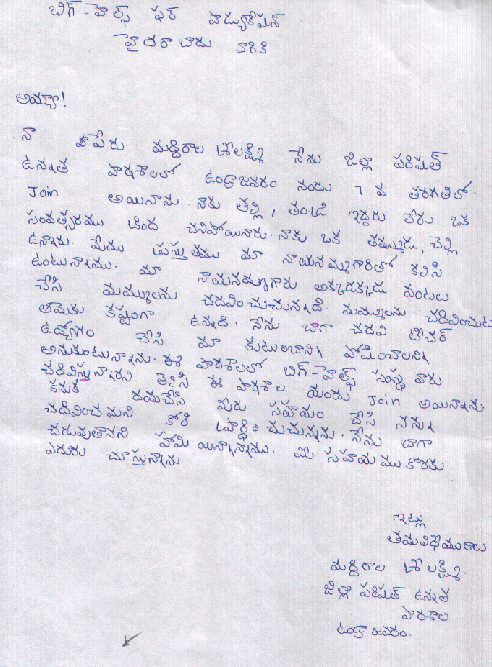 బిగ్-హెల్ప్ ఫర్ ఎడ్యుకేషన్
హైదరాబాదు వారికి
అమ్మా!
నా పేరు మద్దిరాల శ్రీలక్ష్మి నేను జిల్లా పరిషత్
ఉన్నత పాఠశాలలో ఉండ్రాజవరం నందు 7వ తరగతిలో
Join అయినాను. నాకు తల్లి, తండ్రి ఇద్దరు లేరు ఒక
సంవత్సరము క్రింద చనిపోయినారు. నాకు ఒక తమ్ముడు, చెల్లి
ఉన్నారు. మేము ప్రస్తుతము మా నాయనమ్మగారితో కలిసి
ఉంటున్నాము. మా నాయనమ్మగారు అక్కడక్కడు వంటలు
చేసి మమ్ములను చదివించుచున్నది. మమ్ములను చదివించుట
ఆమెకు కష్టంగా ఉన్నది. నేను బాగా చదివి టీచర్
ఉద్యోగం చేసి మా కుటుంబాన్ని పోషించాలని
అనుకుంటున్నాను. ఈ పాఠశాలలో బిగ్-హెల్ప్ సంస్థ వారు
చదివిస్తున్నారని తెలిసి ఈ పాఠశాల యందు Join అయినాను
కనుక దయచేసి మీరు సహాయం చేసి నన్ను
చదివించమని కోరి ప్రార్థించుచున్నాను. నేను బాగా
చదువుతానని హామి యిస్తున్నాను. మీ సహాయము కొరకు
ఎదురు చూస్తున్నాను
ఇట్లు
తమ విధేయురాలు
మద్దిరాల శ్రీలక్ష్మి
జిల్లా పరిషత్ ఉన్నత
పాఠశాల
ఉండ్రాజవరం.